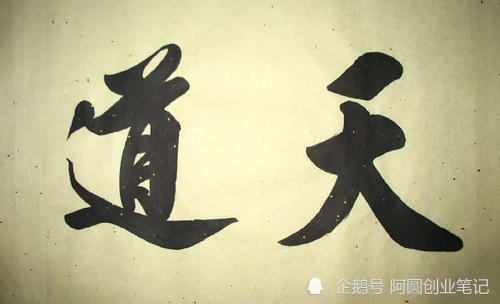 天道
企鹅号 阿圆创业笔记